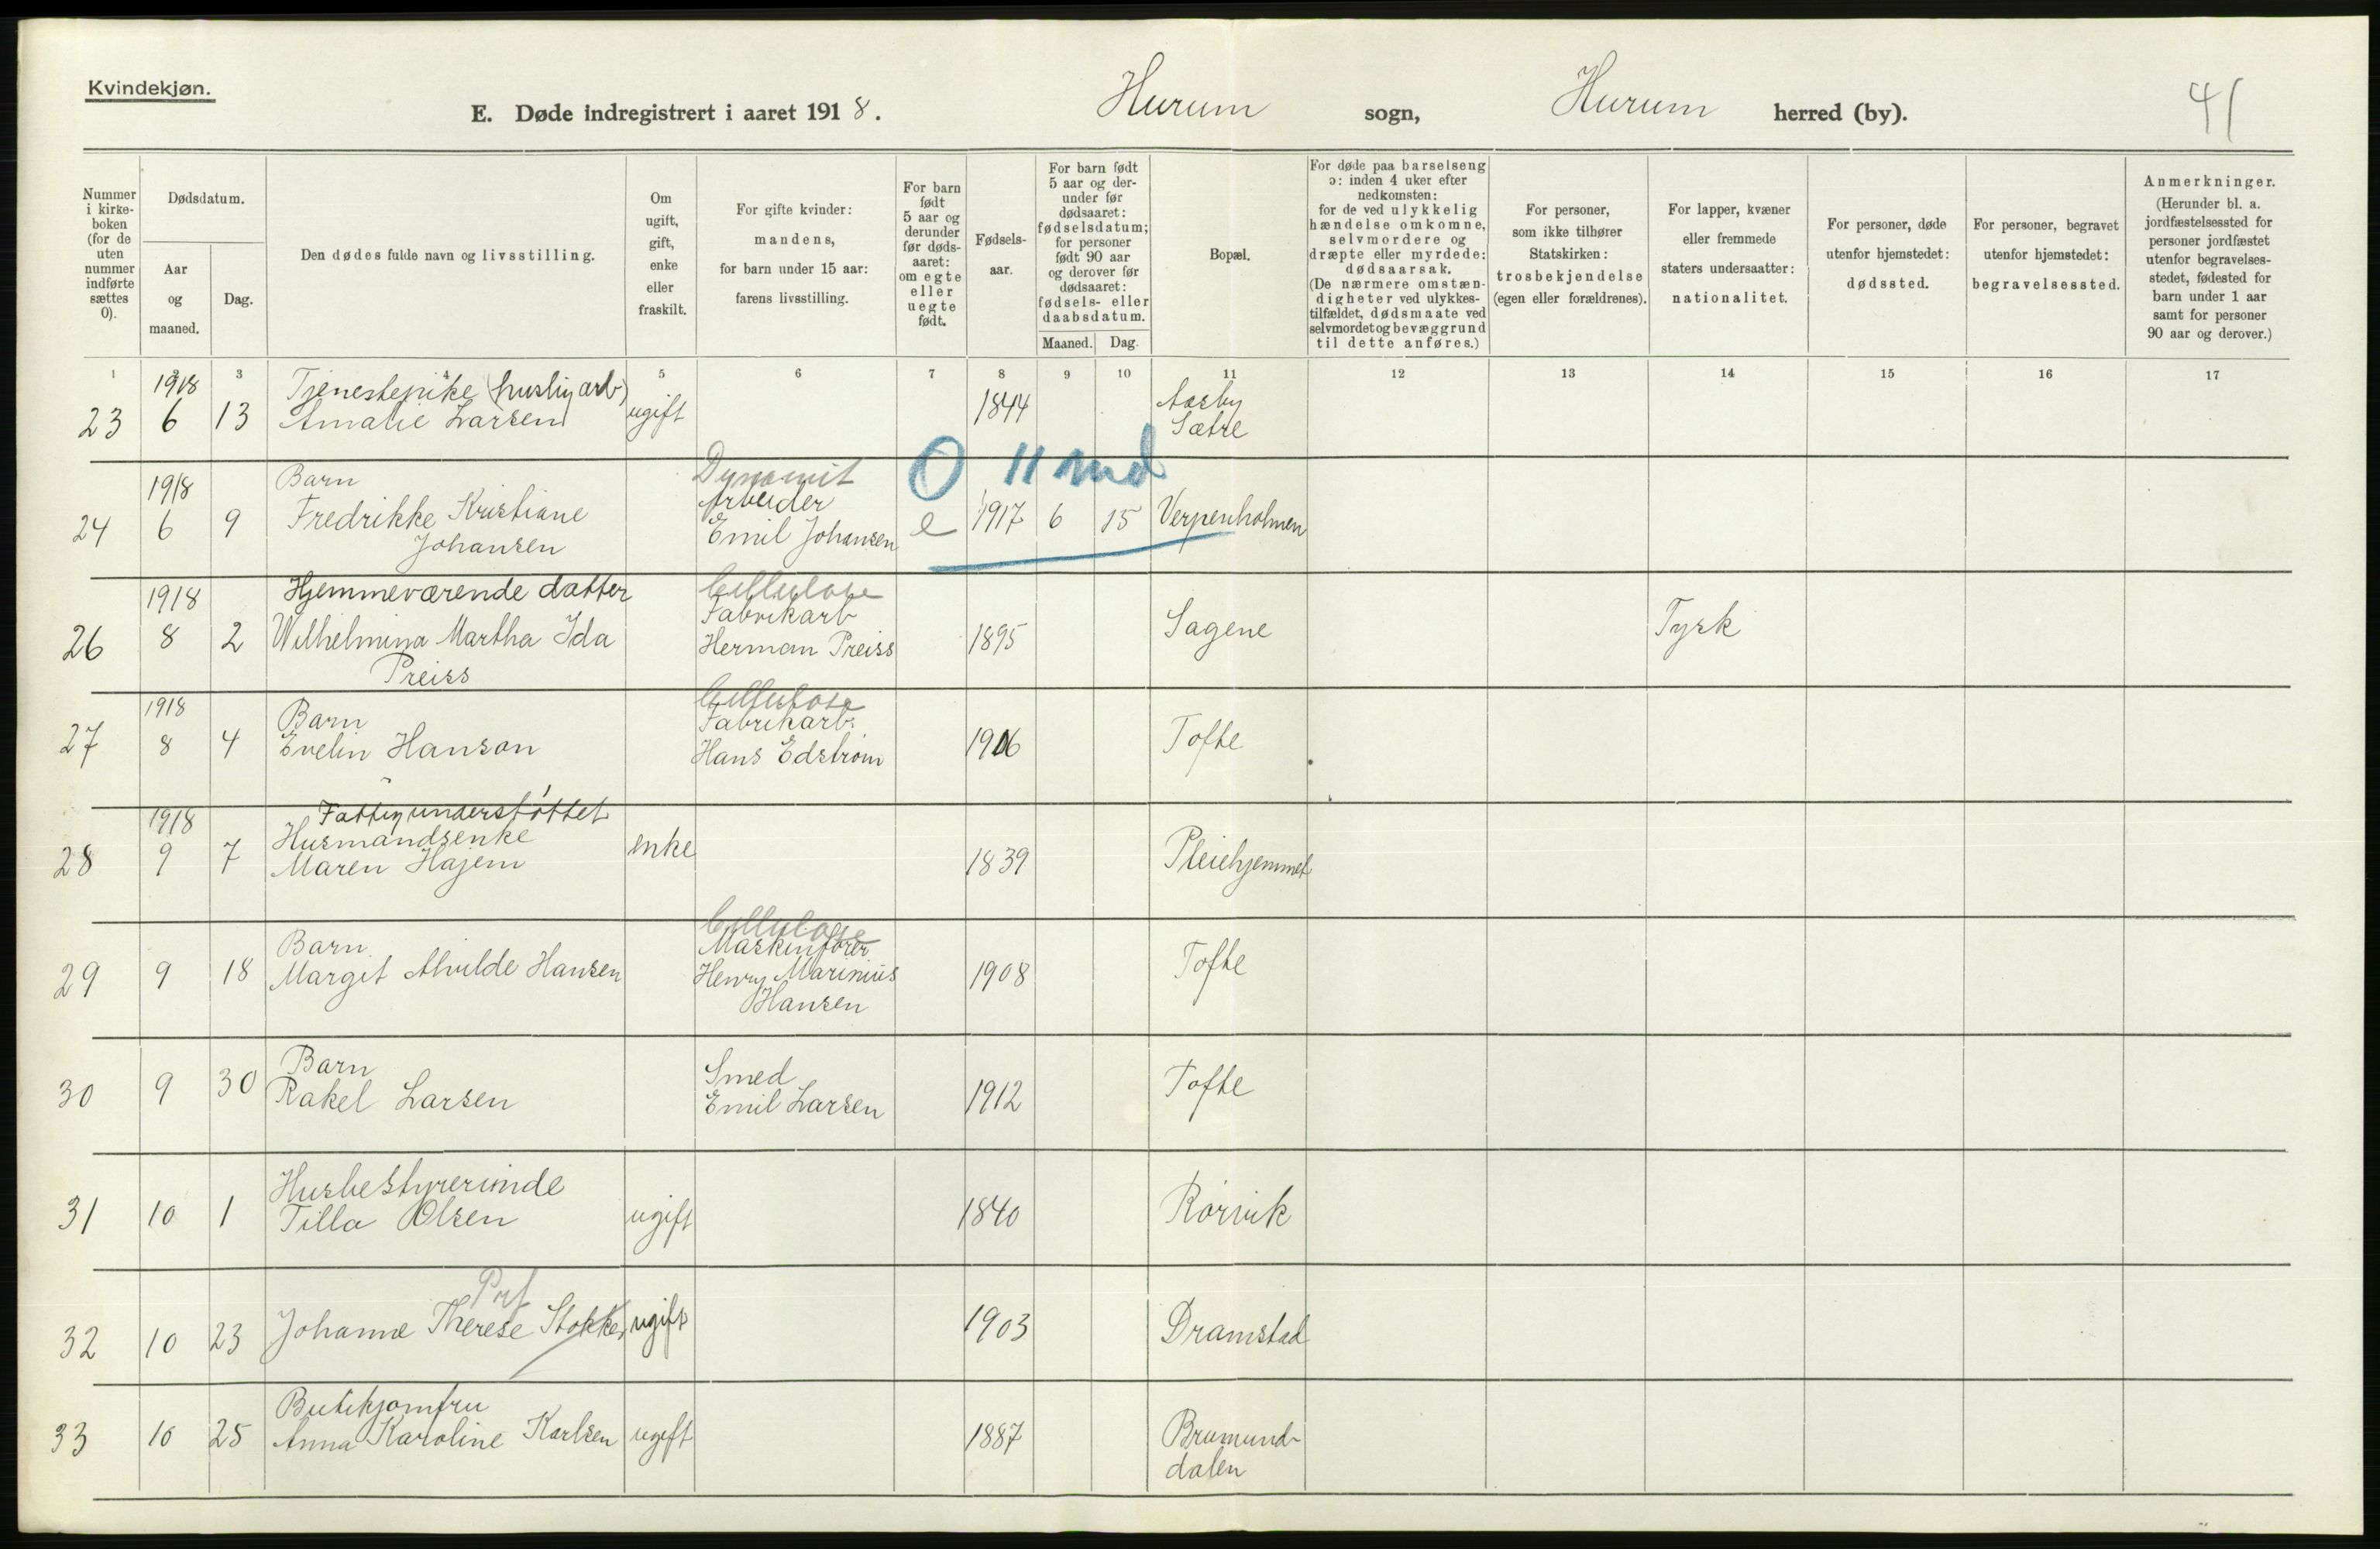 Kvindekjøn.
E. Døde indregistrert i aaret 1918. Hurum sogn, Hurum herred (by). 41
Nummer i kirke-boken (for de uten nummer indførte sættes 0).
Dødsdatum.
Aar og maaned.
Dag.
Den dødes fulde navn og livsstilling.
Om ugift, gift, enke eller fraskilt.
For gifte kvinder: mandens, for barn under 15 aar: farens livsstilling.
For barn født 5 aar og derunder før døds-aaret: om egte eller uegte født.
Fødsels-aar.
For barn født 5 aar og der-under før dødsaaret: fødselsdatum; for personer født 90 aar og derover før dødsaaret: fødsels- eller daabsdatum.
Maaned. Dag.
Bopæl.
For døde paa barselseng ɔ: inden 4 uker efter nedkomsten: for de ved ulykkelig hændelse omkomne, selvmordere og dræpte eller myrdede: dødsaarsak. (De nærmere omstæn-digheter ved ulykkes-tilfældet, dødsmaate ved selvmordet og bevæggrund til dette anføres.)
For personer, som ikke tilhører Statskirken: trosbekjendelse (egen eller forældrenes).
For lapper, kvæner eller fremmede staters undersaatter: nationalitet.
For personer, døde utenfor hjemstedet: dødssted.
For personer, begravet utenfor hjemstedet: begravelsessted.
Anmerkninger. (Herunder bl. a. jordfæstelsessted for personer jordfæstet utenfor begravelses-stedet, fødested for barn under 1 aar samt for personer 90 aar og derover.)
1 2 3 4 5 6 7 8 9 10 11 12 13 14 15 16 17
1918 Tjenestepike (huslig arb) Aasby
23 6 13 Amalie Larsen ugift 1844 Sætre
1918 Barn Dynamit 0 11 md
Arbeider
24 6 9 Fredrikke Kristiane Johansen Emil Johansen e 1917 6 15 Verpenholmen
1918 Hjemmeværende datter Cellulose
Fabrikarb
26 8 2 Wilhelmina Martha Ida Preiss Herman Preiss 1895 Sagene Tysk
1918 Barn Cellulose
Fabrikarb.
27 8 4 Evelin Hanson Hans Edstrøm 1906 Tofte
1918 Fattigunderstøttet
Husmandsenke
28 9 7 Maren Hajem enke 1839 Pleiehjemmet
Barn Cellulose
Maskinfører
29 9 18 Margit Alvilde Hansen Henry Marinius Hansen 1908 Tofte
Barn Smed
30 9 30 Rakel Larsen Emil Larsen 1912 Tofte
Husbestyrerinde
31 10 1 Tilla Olsen ugift 1840 Rørvik
32 10 23 Johanne Therese Stokker ugift 1903 Dramstad
Butikjomfru
33 10 25 Anna Karoline Karlsen ugift 1887 Brumund-
dalen